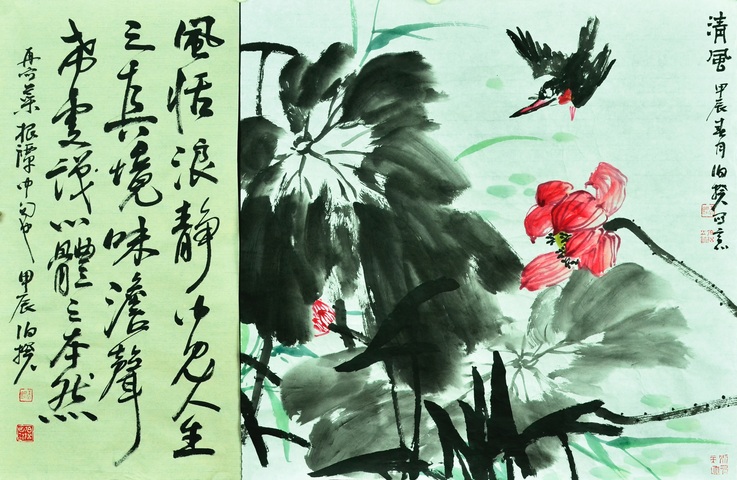 清風 甲辰春月伯揆寫意
風恬浪靜中見人生
之真境味澹聲
希處識心體之本然
菜根譚中句 甲辰伯揆